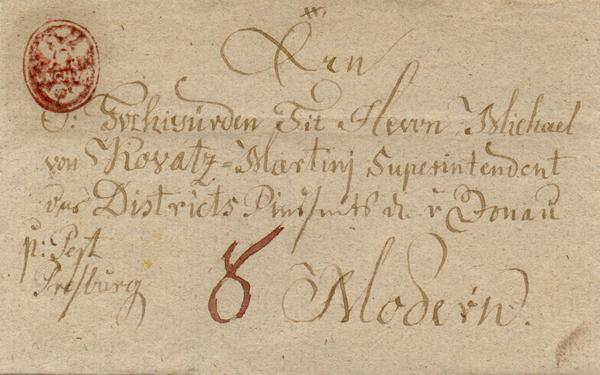 S: Hochwürden Tit Herrn Michael
von Kovatz-Martinj Superintendent
des Districts Diesseits d. Donau
p: Pest
Presburg
8 Modern.